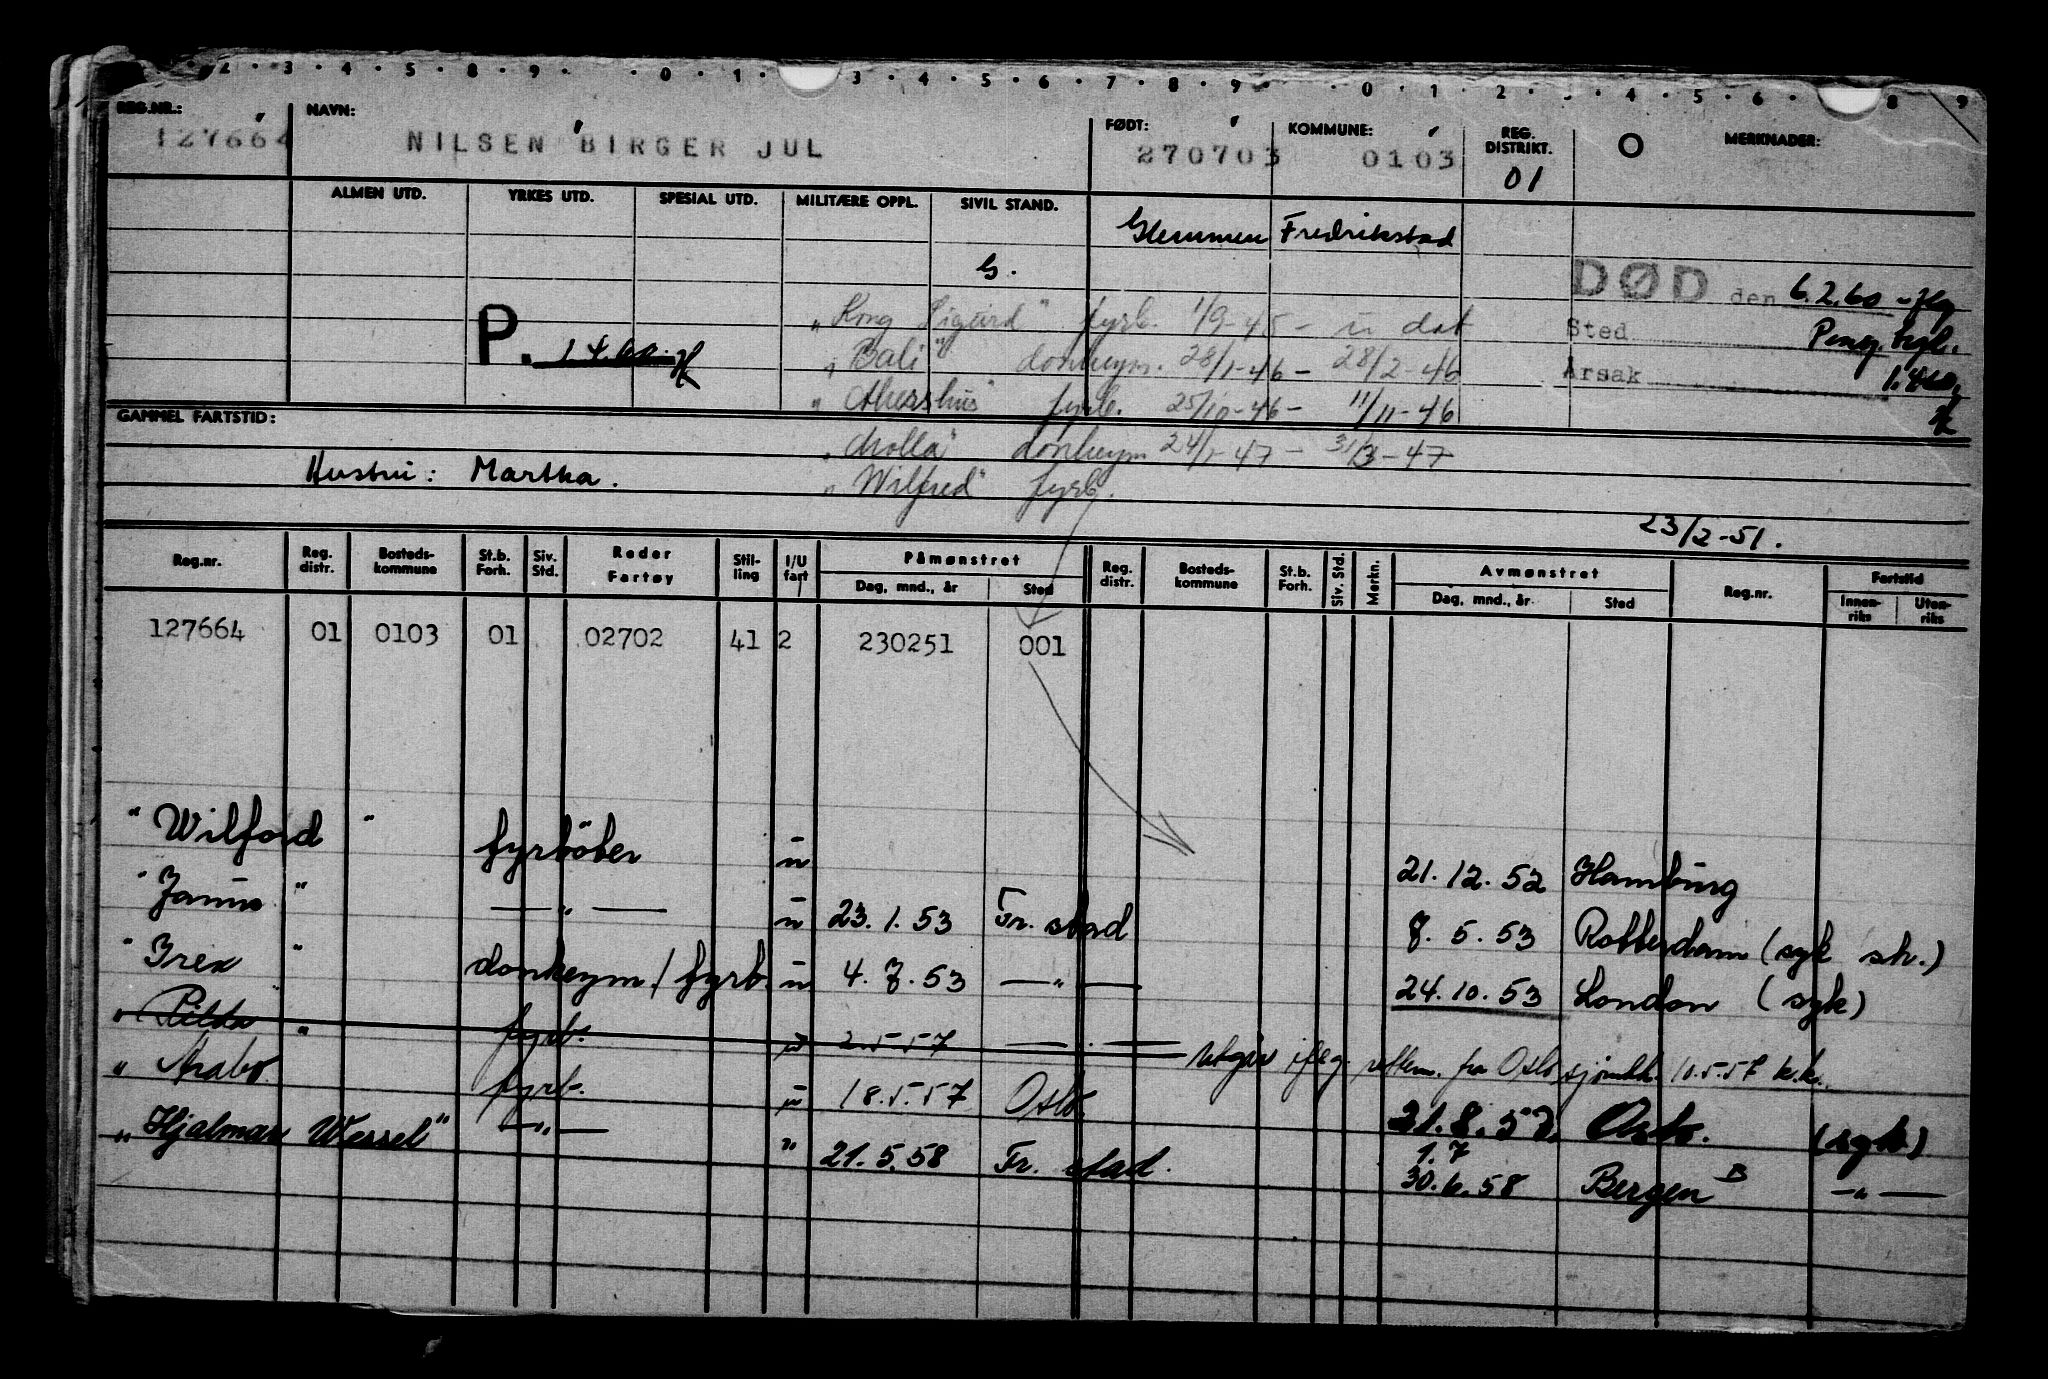 2 . 3 . 4 . 5 . 8 . 9 . . 0 . 1 . 3 . 4 . 5 . 6 . 7 . 8 . 9 . . 0 . 1 . 2 . 3 . 4 . 5 . 6 . 8 9
REG.NR.: NAVN: FØDT: KOMMUNE: REG. DISTRIKT. O MERKNADER:
127664 NILSEN BIRGER JUL 270703 0103 01
ALMEN UTD. YRKES UTD. SPESIAL UTD. MILITÆRE OPPL. SIVIL STAND.
Glemmen Fredrikstad
G.
DØD den 6.2.60
"Kong Sigurd" fyrb. 1/9-45 - u dat
Sted Peng. tryl.
P. "Bali" donkeym. 28/1-46 - 28/2-46
Årsak
"Akershus" fyrb. 25/10-46 - 11/11-46
GAMMEL FARTSTID:
"Molla" donkeym 24/1-47 - 31/3-47
Hustru: Martha.
"Wilfred" fyrb.
23/2-51.
Reg.nr. Reg. distr. Bosteds-kommune St.b. Forh. Siv. Std. Reder Fartøy Stil-ling I/U fart Påmønstret Dag, mnd., år Sted Reg. distr. Bosteds-kommune St.b. Forh. Siv. Std. Merkn. Avmønstret Dag, mnd., år Sted Reg.nr. Fartstid Innen-riks Uten-riks
127664 01 0103 01 02702 41 2 230251 001
"Wilford" fyrbøter u 21.12.52 Hamburg
"Janus" — " — u 23.1.53 Fr. stad 8.5.53 Rotterdam (syk sh.)
"Irex" donkeym/fyrb. u 4.7.53 — " — 24.10.53 London (syk)
"Rilda" fyrb. u 2.5.57 — " — Utgår iflg. reftem. fra Oslo sjømk. 10.5.57 k.k.
"Arabo" fyrb. u 18.5.57 Oslo. 21.8.57. Oslo. (syk)
"Hjalmar Wessel" — " — " 21.5.58 Fr. stad. 1.7
30.6.58 Bergen B — " —